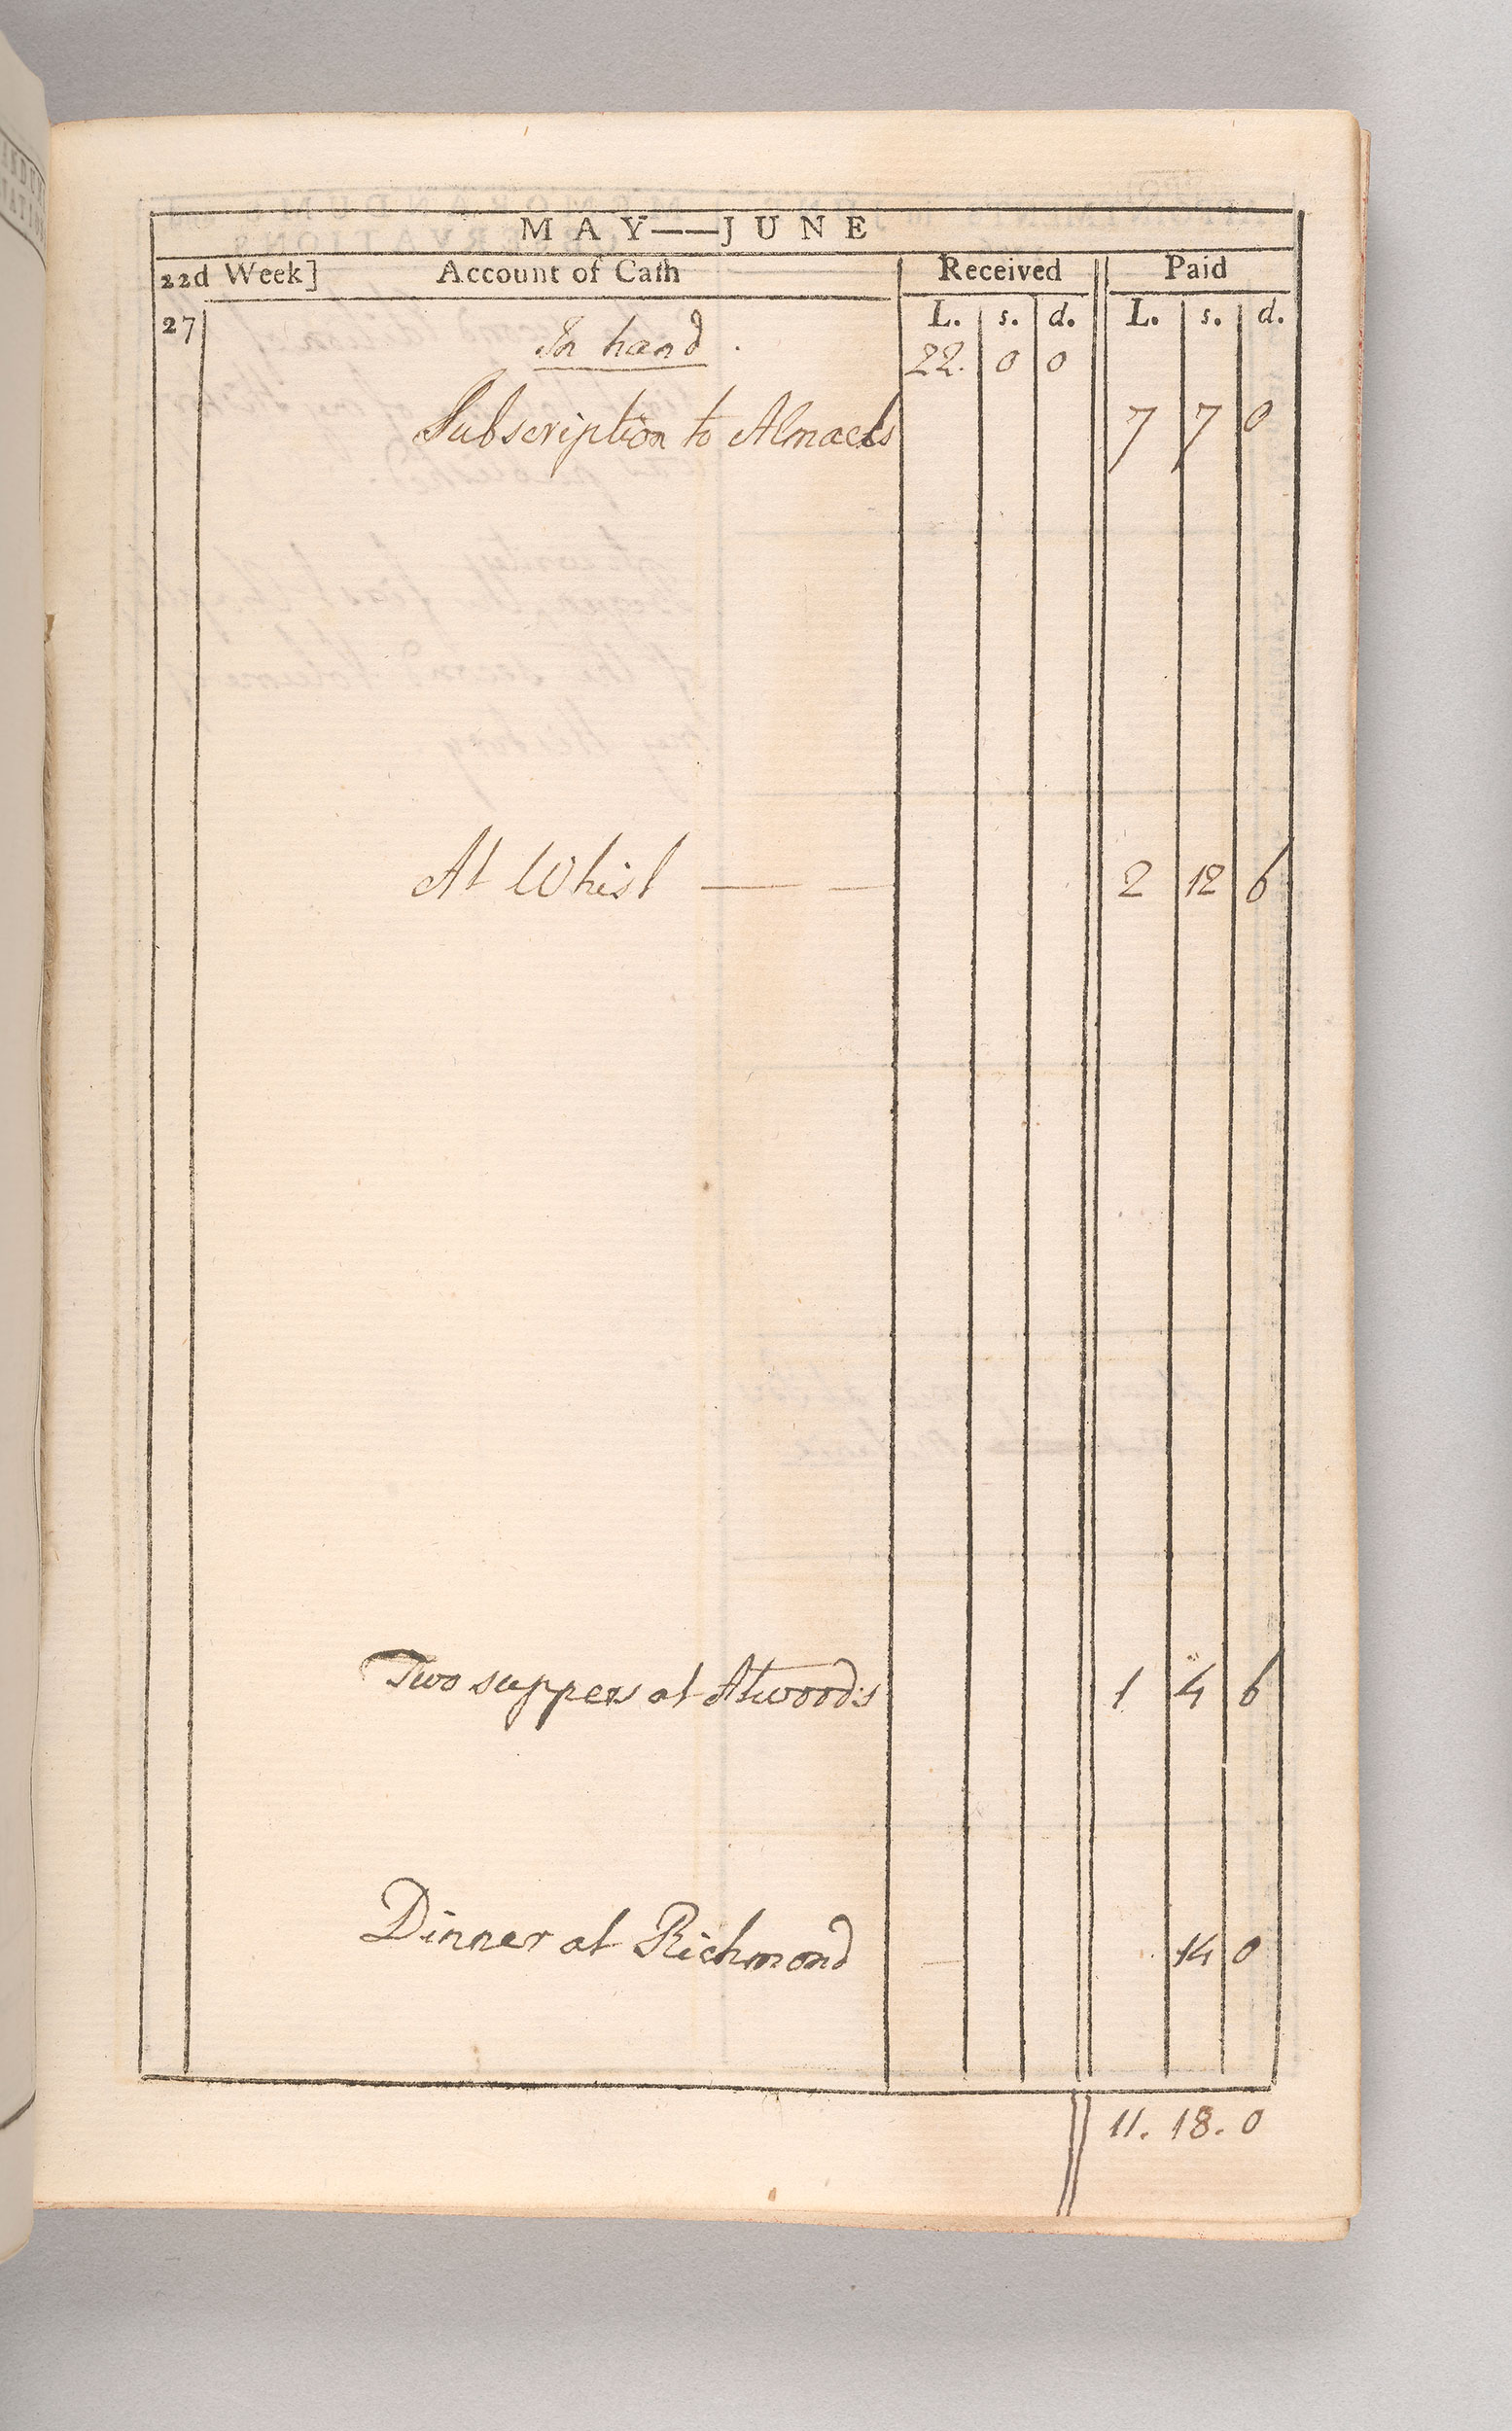 MAY——JUNE
22d Week] Account of Cash Received Paid
L. s. d. L. s. d.
27 In hand. 22. 0 0
Subscription to Almacks 7 7 0
At Whist — — 2 12 6
Two suppers at Atwood's 1 4 6
Dinner at Richmond — 14 0
11. 18. 0